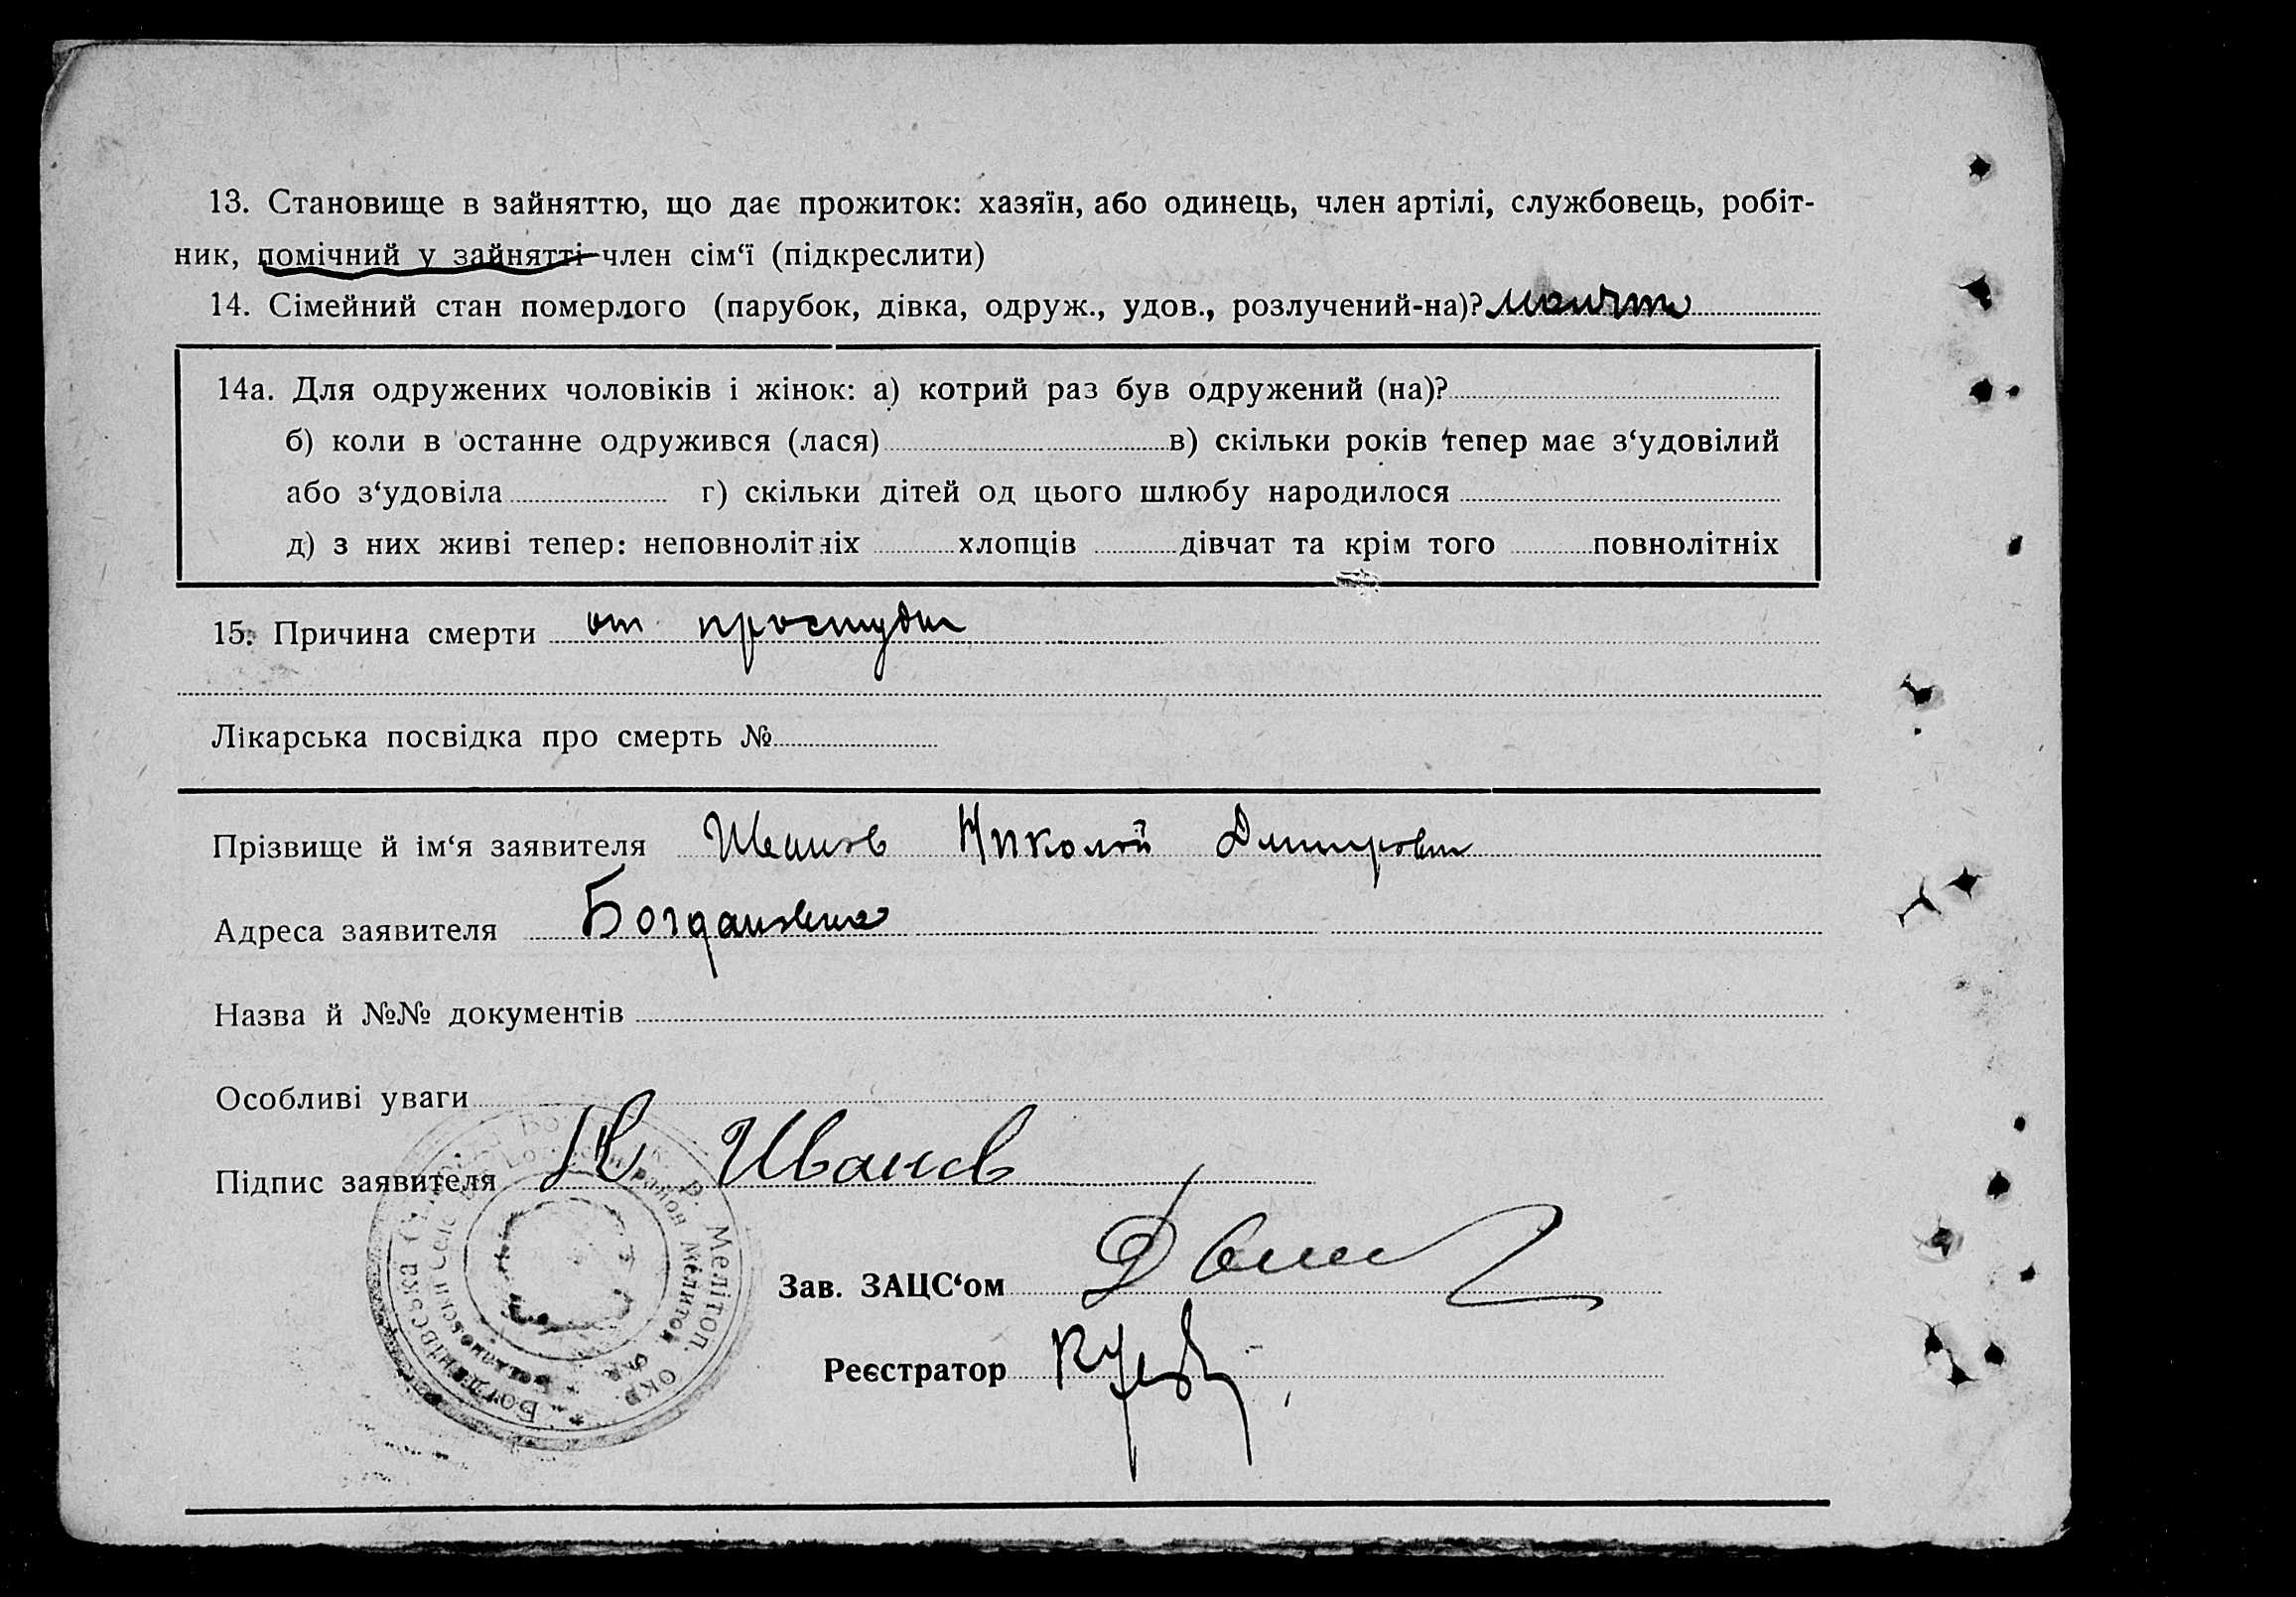 13. Становище в зайняттю, що дає прожиток: хазяїн, або одинець, член артілі, службовець, робіт-
ник, помічний у зайнятті член сім‘ї (підкреслити)
14. Сімейний стан померлого (парубок, дівка, одруж., удов., розлучений-на)?
14а. Для одружених чоловіків і жінок: а) котрий раз був одружений (на)?
б) коли в останне одружився (лася) в) скільки років тепер має з‘удовілий
або з‘удовіла г) скільки дітей од цього шлюбу народилося
д) з них живі тепер: неповнолітніх хлопців дівчат та крім того повнолітніх
15. Причина смерти от простуды
Лікарська посвідка про смерть №
Прізвище й ім‘я заявителя Иванов Николай Дмитрович
Адреса заявителя Богдановка
Назва й №№ документів
Особливі уваги
Підпис заявителя Н Иванов
Зав. ЗАЦС‘ом
Реєстратор
Мелітоп. окр.